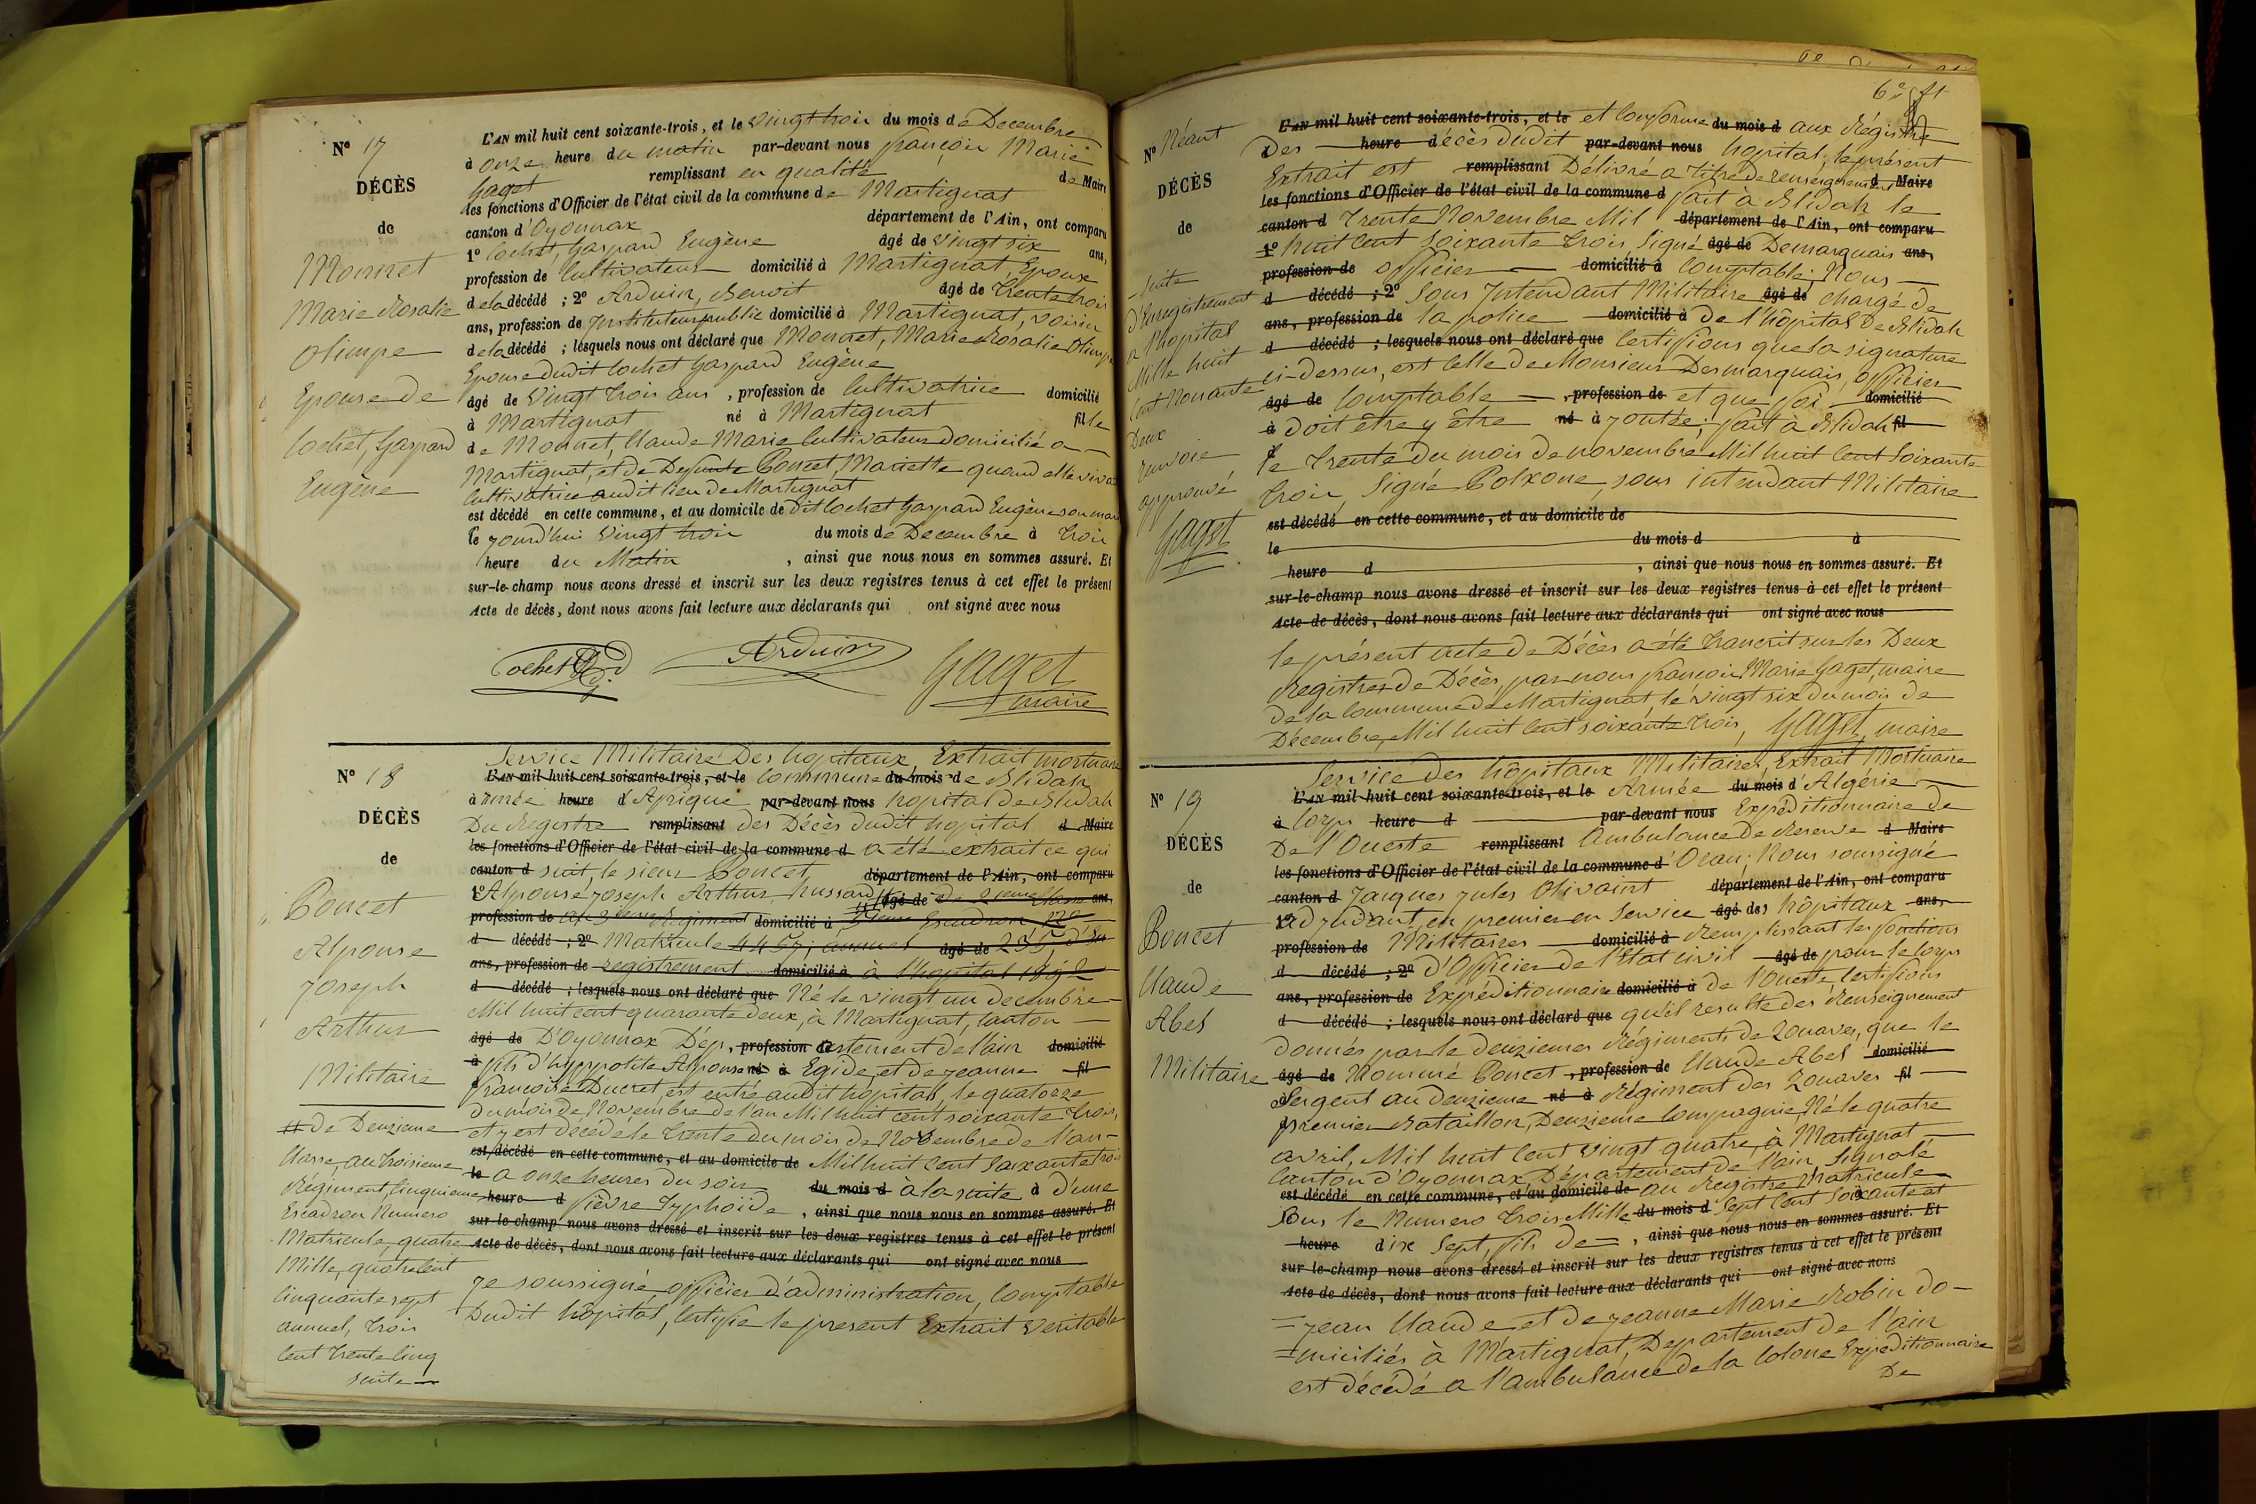 N° 17
DÉCÈS
de
Monnet
Marie Rosalie
Olimpe
Epouse de
Cochet, Gaspard
Eugène
L'AN mil huit cent soixante-trois, et le vingt trois du mois de Decembre
à onze heure du matin par-devant nous françois Marie
Gaget remplissant en qualité de Maire
les fonctions d'Officier de l'état civil de la commune de Martignat
canton d'Oyonnax département de l'Ain, ont comparu
1° Cochet, Gaspard Eugène âgé de vingt six ans,
profession de Cultivateur domicilié à Martignat, Epoux
de la décédé ; 2° Arduin, Benoit âgé de trente trois
ans, profession de Instituteur public domicilié à Martignat, voisin
de la décédé ; lesquels nous ont déclaré que Monnet, Marie Rosalie Olimpe
Epouse dudit Cochet Gaspard Eugène
âgé de vingt trois ans, profession de Cultivatrice domicilié
à Martignat né à Martignat fille
de Monnet, Claude Marie Cultivateur domicilié a
Martignat, et de Defunte Poncet, Mariette quand elle vivait
Cultivatrice audit lieu de Martignat
est décédé en cette commune, et au domicile de dit Cochet Gaspard Eugène son mari
le jourd'hui vingt trois du mois de Decembre à trois
heure du Matin, ainsi que nous nous en sommes assuré. Et
sur-le-champ nous avons dressé et inscrit sur les deux registres tenus à cet effet le présent
Acte de décès, dont nous avons fait lecture aux déclarants qui ont signé avec nous
Cochet Arduin Gaget
maire
N° 18
DÉCÈS
de
Poncet
Alponse
Joseph
Arthur
Militaire
# de Deuzieme
Classe, au troisieme
Régiment, Cinquieme
Escadron Numero
Matricule, quatre
Mille, quatre cent
Cinquante sept
annuel, trois
Cent trente cinq
suite
Service Militaire Des hopitaux, Extrait mortuaire
L'AN mil huit cent soixante-trois, et le Commune du mois de Blidah
à armée heure d'Afrique par-devant nous hopital de Blidah
Du Registre remplissant des Décès dudit hopital d Maire
les fonctions d'Officier de l'état civil de la commune d a été extrait ce qui
canton d suit, le sieur Poncet, département de l'Ain, ont comparu
1° Alponse Joseph Arthur, hussard # âgé de De 2ieme Classe ans,
profession de au 3ieme Regiment domicilié à 5ieme Escadron No
d décédé ; 2° Matricule 4457, annuel âgé de 335, d'En
ans, profession de registrement domicilié à à l'hopital 1892
d décédé ; lesquels nous ont déclaré que Né le vingt un decembre
Mil huit cent quarante deux, à Martignat, canton
âgé de D'Oyonnax Dép, profession de artement de l'ain domicilié
à fils d'hyppolite Alponse né à Egide, et de jeanne fil
françoise Ducret, est entré audit hopital, le quatorze
du mois de Novembre de l'an Mil huit cent soixante trois,
et y est décédé le trente du mois de Novembre de l'an
est décédé en cette commune, et au domicile de Mil huit cent Soixante trois
le a onze heures du soir du mois d à la suite à d'une
heure d fièvre Typhoïde, ainsi que nous nous en sommes assuré. Et
sur-le-champ nous avons dressé et inscrit sur les deux registres tenus à cet effet le présent
Acte de décès, dont nous avons fait lecture aux déclarants qui ont signé avec nous
Je soussigné, officier d'administration, Comptable
Dudit hôpital, Certifie le present Extrait veritable
6e ft
N° Néant
DÉCÈS
de
suite
d'Enregistrement
a l'hopital
Mille huit
Cent Nonante
Deux
renvoie
approuvé
Gaget
L'AN mil huit cent soixante-trois, et le et Conforme du mois d aux Régistre
Des heure décès dudit par-devant nous hopital; le présent
Extrait est remplissant Délivré a titre de renseignement d Maire
les fonctions d'Officier de l'état civil de la commune d fait à Blidah le
canton d trente Novembre Mil département de l'Ain, ont comparu
1° huit cent soixante trois, Signé âgé de Demarquais ans,
profession de officier domicilié à Comptable; Nous
d décédé ; 2° Sous Intendant Militaire âgé de chargé de
ans, profession de la police domicilié à De l'hôpital De Blidah
d décédé ; lesquels nous ont déclaré que Certifions que la signature
ci-dessus, est celle de Monsieur Desmarquais, officier
âgé de Comptable, profession de et que foi domicilié
à doit être y être né à joutée; fait à Blidah fil
le trente Du mois de novembre Mil huit cent Soixante
trois, Signé Polxone, sous intendant Militaire
est décédé en cette commune, et au domicile de
le du mois d à
heure d, ainsi que nous nous en sommes assuré. Et
sur-le-champ nous avons dressé et inscrit sur les deux registres tenus à cet effet le présent
Acte de décès, dont nous avons fait lecture aux déclarants qui ont signé avec nous
le présent acte de Décès a été trancrit sur les Deux
Registres de Décès, par nous françois Marie Gaget, maire
de la Commune de Martignat, le vingt six du mois de
Décembre, Mil huit cent soixante trois, Gaget, maire
N° 19
DÉCÈS
de
Poncet
Claude
Abel
Militaire
Service des hôpitaux Militaires, Extrait Mortuaire
L'AN mil huit cent soixante-trois, et le Armée du mois d'Algérie
à Corps heure d par-devant nous Expéditionnaire de
De l'Oueste remplissant Ambulance De Reserve d Maire
les fonctions d'Officier de l'état civil de la commune d'Oran; Nous soussigné
canton d Jacques Jules Olivaint département de l'Ain, ont comparu
1° adjudant, en premier en Service âgé des hôpitaux ans,
profession de Militaires domicilié à Remplissant les fonctions
d décédé ; 2° d'Officier de l'Etat civil âgé de pour le Corps
ans, profession de Expéditionnaire domicilié à de l'Oueste, Certifions
d décédé ; lesquels nous ont déclaré que qu'il resulte des Renseignement
donnés par le deuzieme Régiments de Zouaves, que le
âgé de Nommé Poncet, profession de Claude Abel domicilié
Sergent au Deuzieme né à Régiment des Zouaves fil
premier Bataillon, Deuzieme Compagnie, Né le quatre
avril, Mil huit Cent vingt quatre, à Martignat
Canton d'Oyonnax, Département de l'ain, Signalé
est décédé en cette commune, et au domicile de au Registre Matricule
Sous le Numero trois Mille du mois d Sept Cent Soixante et
heure dix Sept, fils de =, ainsi que nous nous en sommes assuré. Et
sur-le-champ nous avons dressé et inscrit sur les deux registres tenus à cet effet le présent
Acte de décès, dont nous avons fait lecture aux déclarants qui ont signé avec nous
= jean Claude et de jeanne Marie Robin do-
=miciliés à Martignat, Departement de l'ain
est décédé a l'ambulance de la Colone Expéditionnaire
De